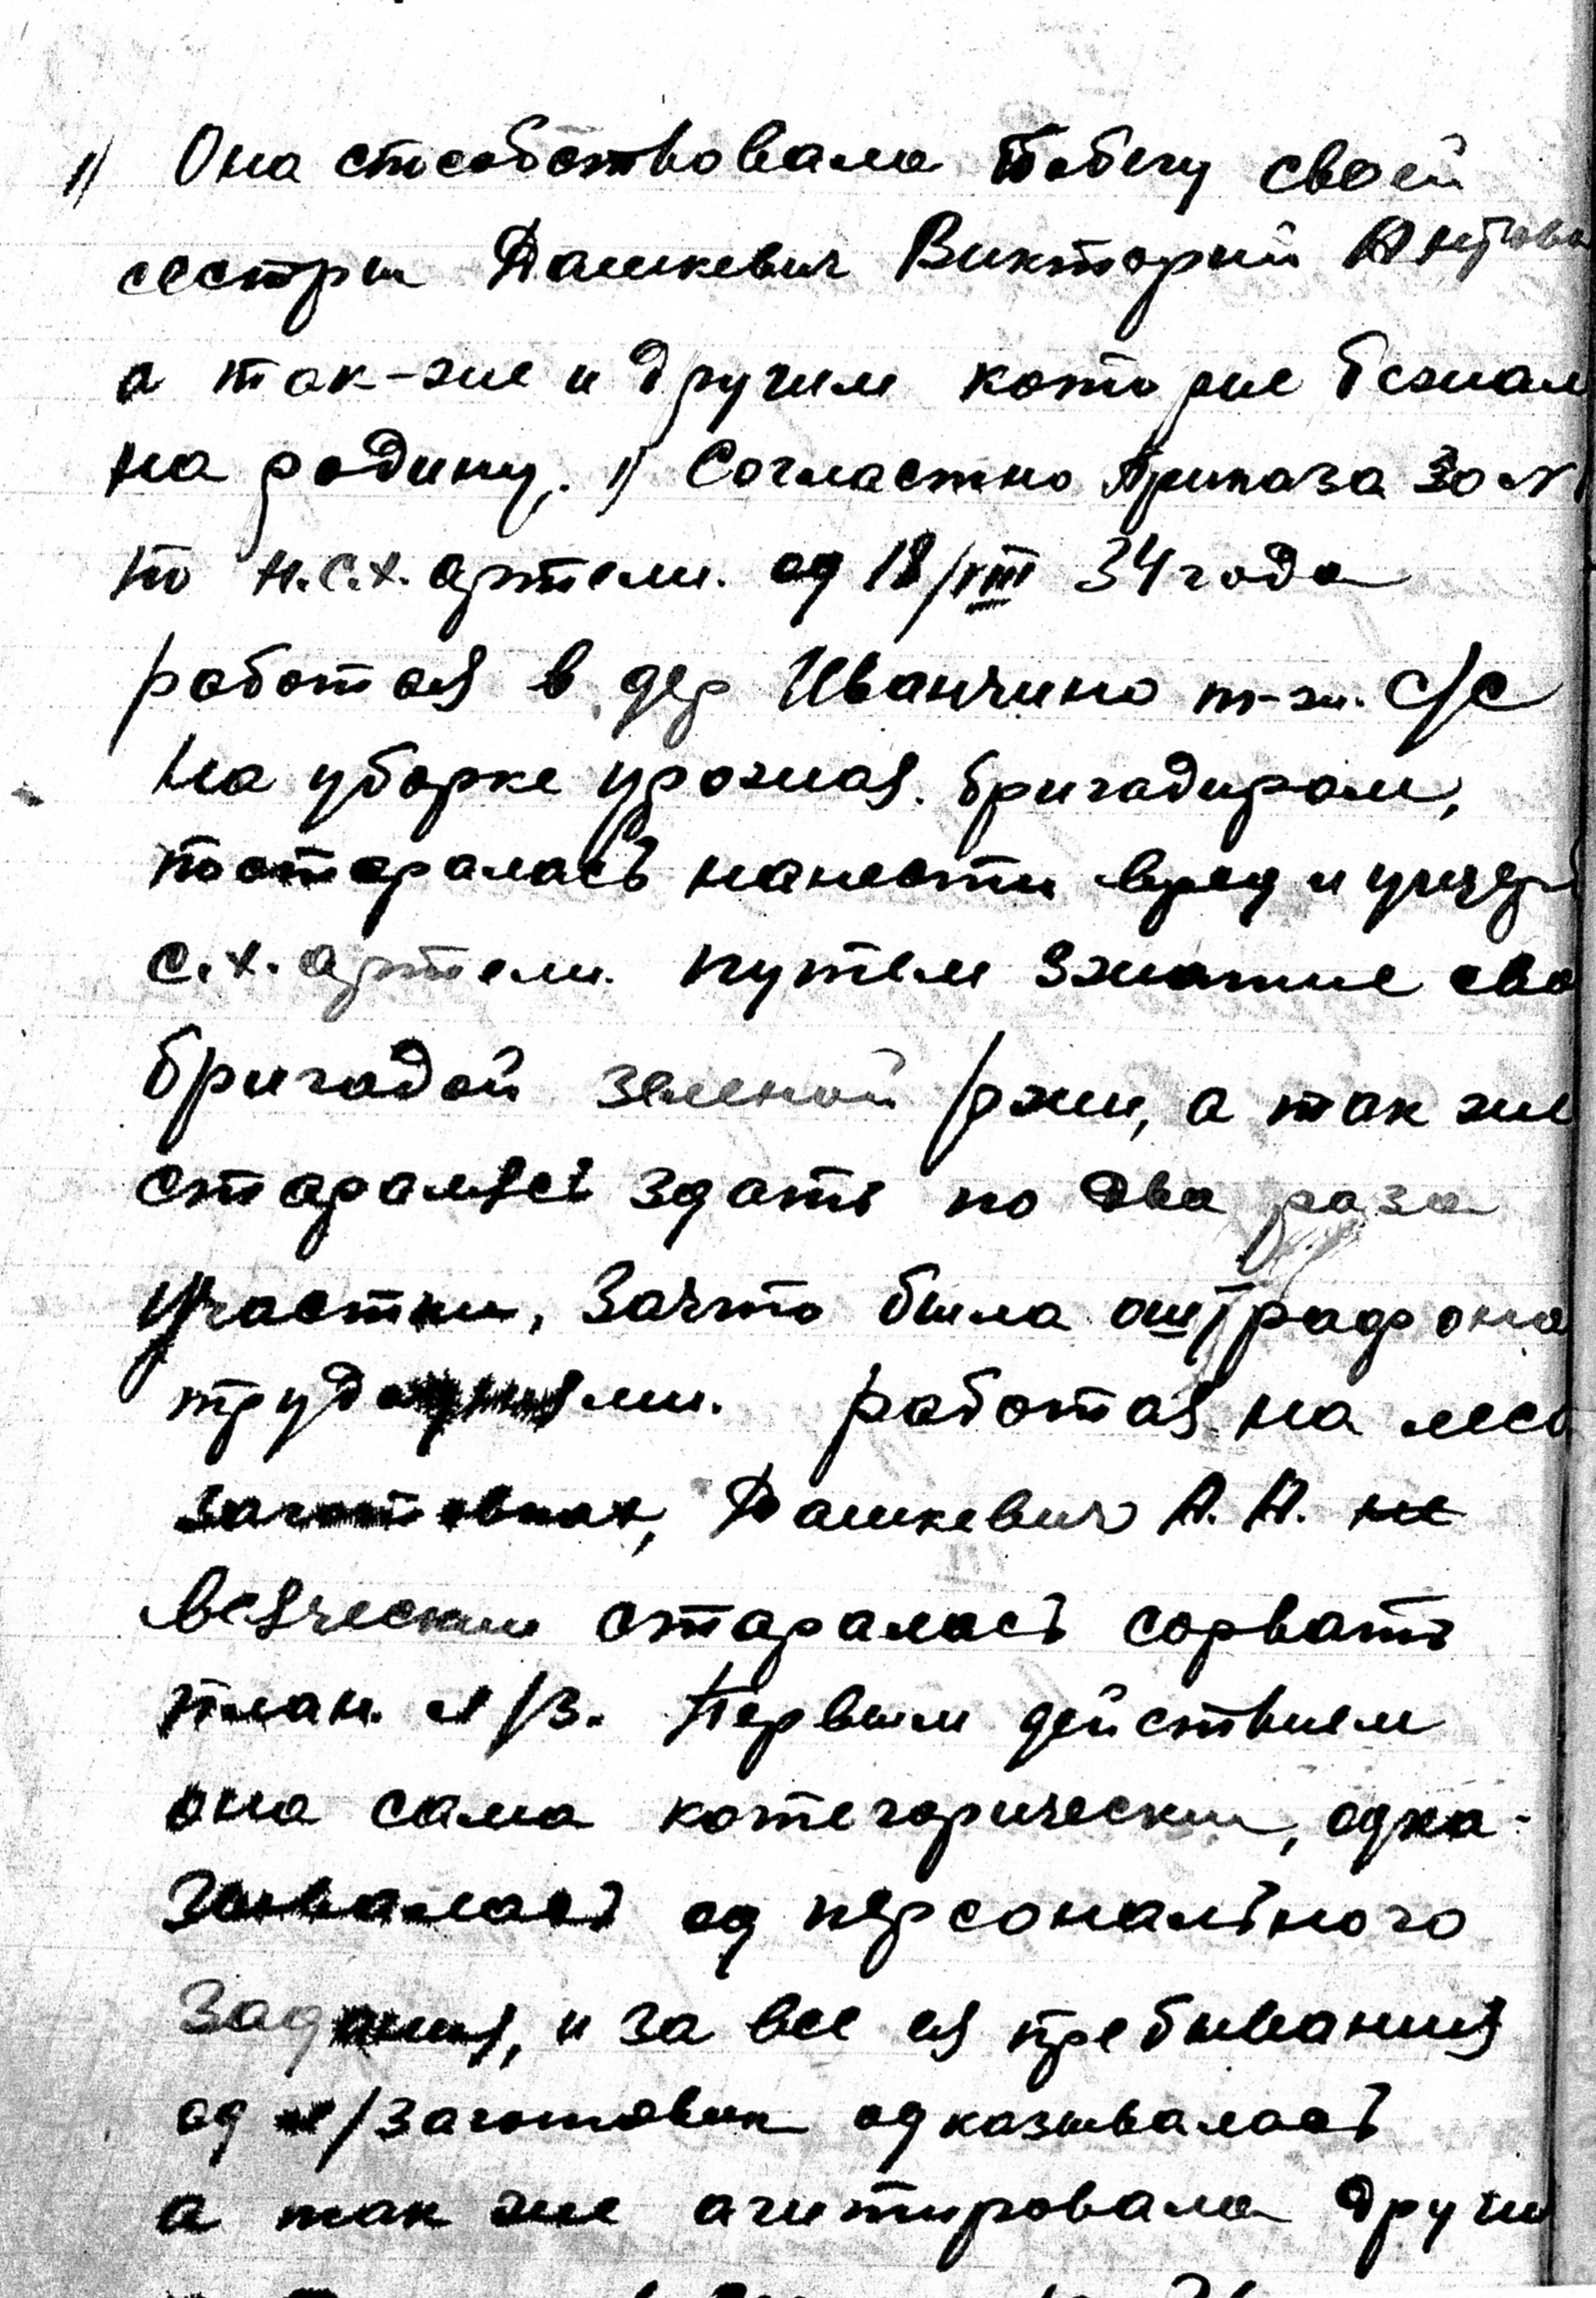 1) Она способствовала побегу своей
сестры Дашкевич Викторий Антоно
а так-же и другим которые бежал
на родину. 1) Согластно приказа за №
по н.с.х. артели. од 18/VIII 34 года
работая в дер Иванчино т-ж. с/с
на уборке урожая. бригадиром,
постаралась нанести вред и ущер
с.х. артели. путем зжатие сво
бригадой зеленой ржи, а так же
старалясь здать по два раза
участки, зачто была оштрафона
труд ми. работая на лесо
заготовках, Дашкевич А. А. не
всяческии старалась сорвать
план. л/з. Первым действием
она сама котегорически, одка-
зывалась од персонального
задания, и за все ея пребывания
од л/заготовок одказывалась
а так же агитировала други